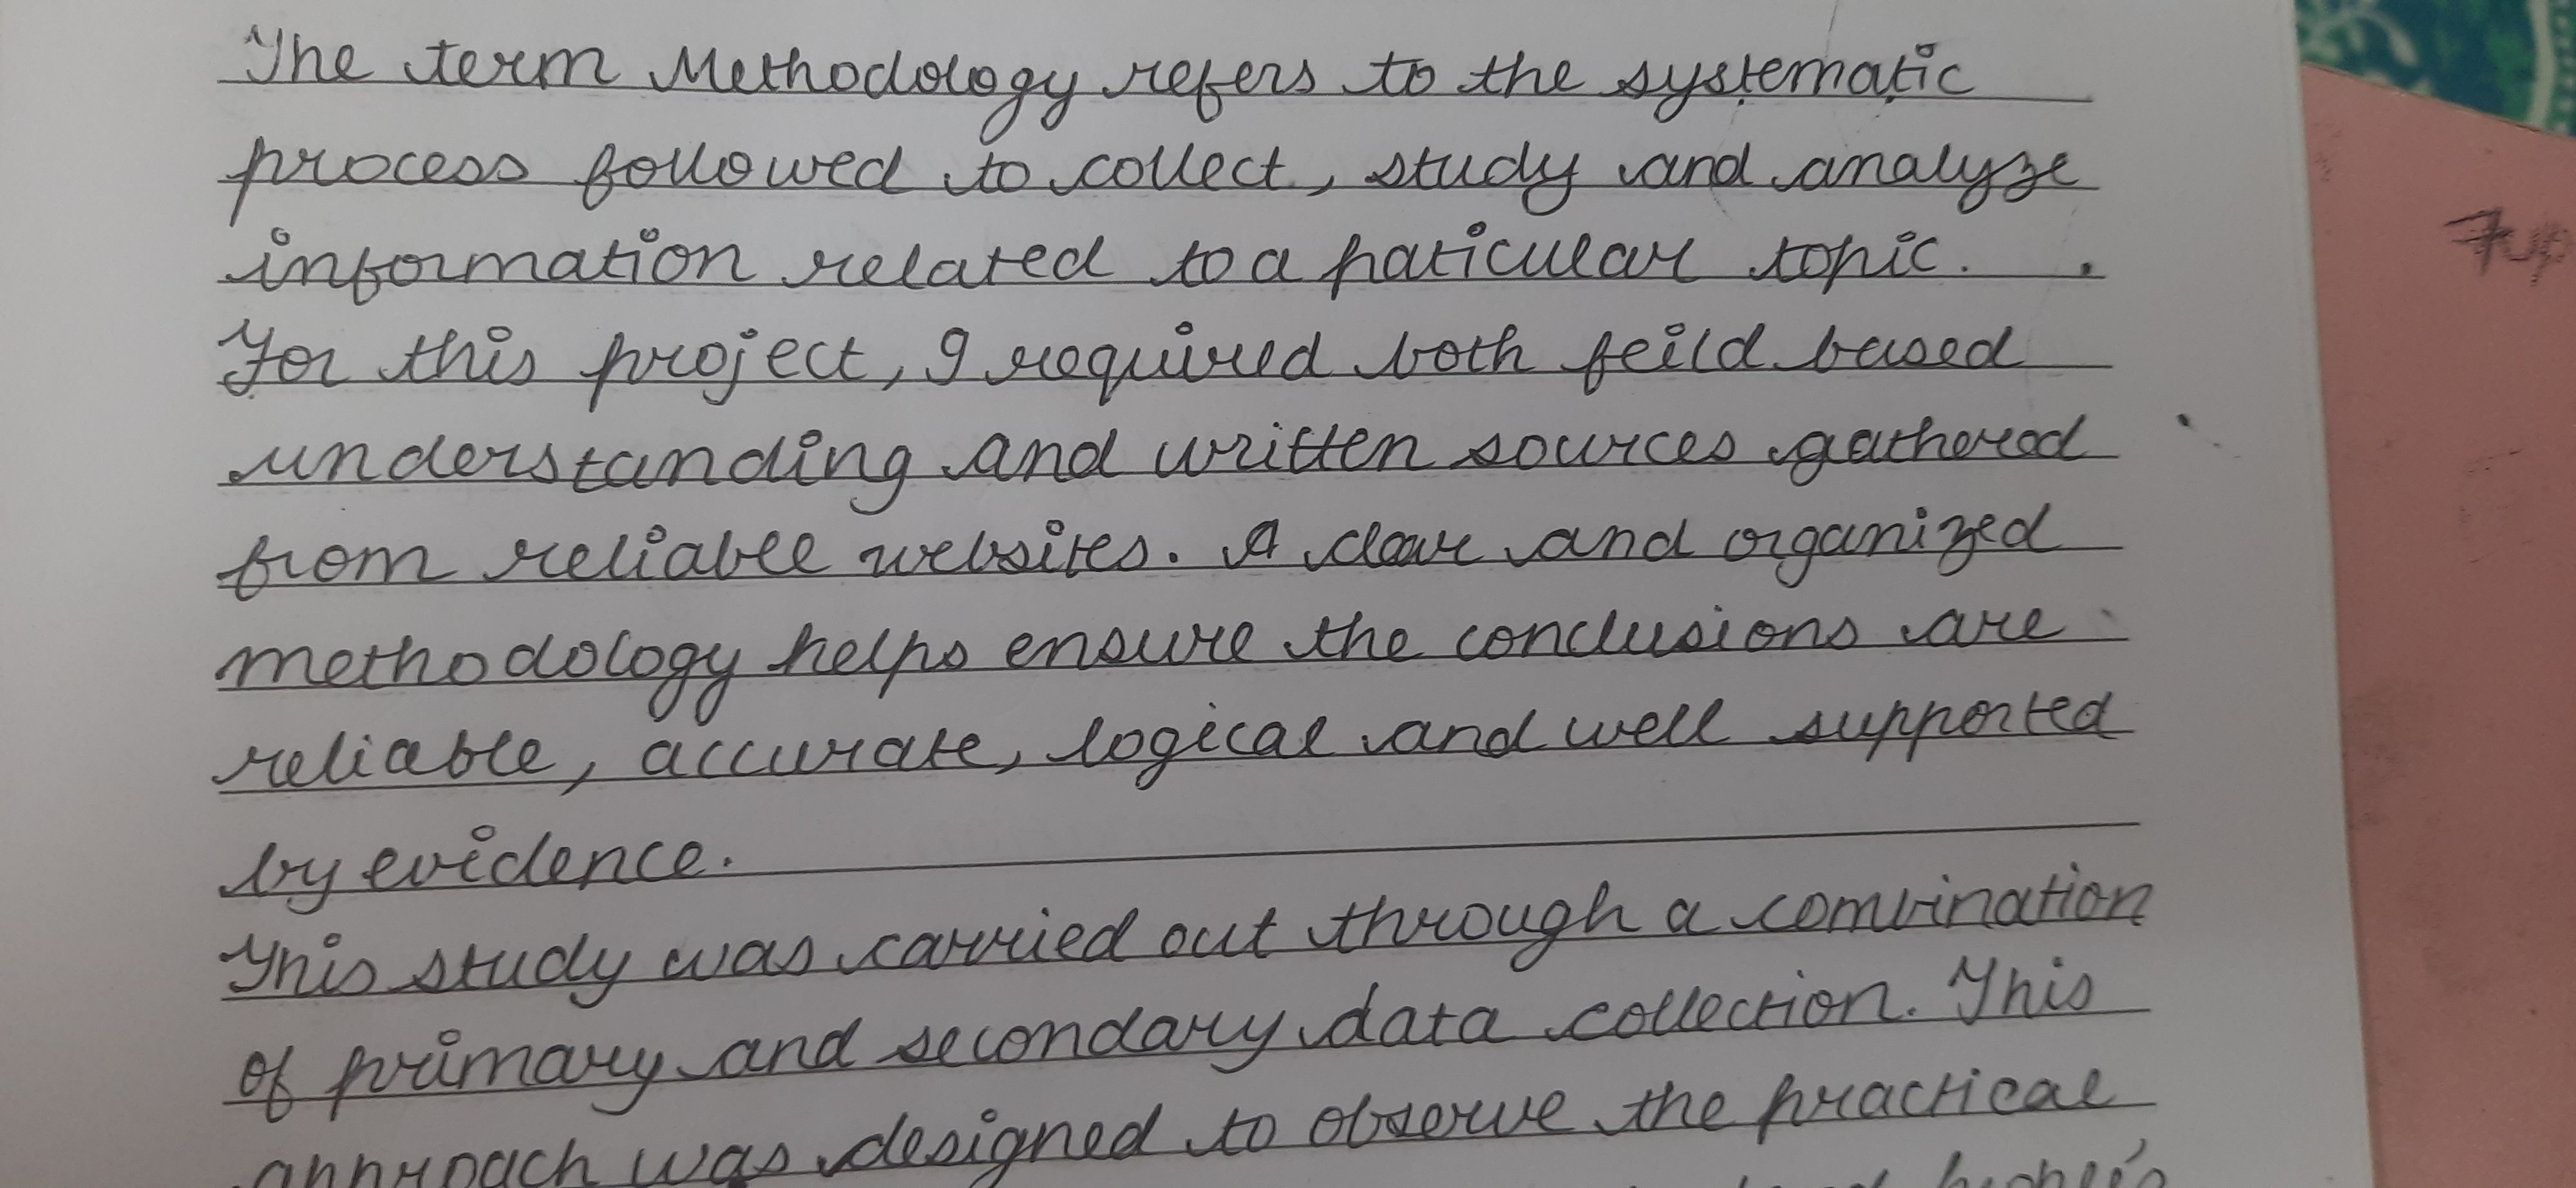 The term Methodology refers to the systematic
process followed to collect, study and analyze
information related to a paticular topic.
For this project, I required both feild based
understanding and written sources gathered
from reliable websites. A clear and organized
methodology helps ensure the conclusions are
reliable, accurate, logical and well supported
by evidence.
This study was carried out through a combination
of primary and secondary data collection. This
approach was designed to observe the practical